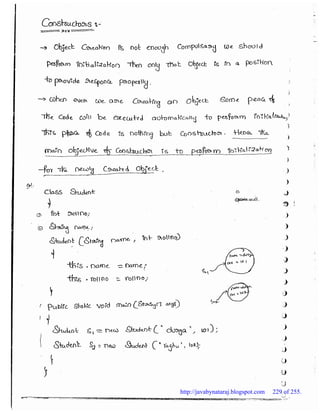 Constructors :-
→ Object Creation is not enough Compulsary we should
perform Initialization Then only That Object is in a position
to provide response properly.
→ When ever we are Creating an object Some peace of
The Code will be executed automatically to perform Initialization,
This peace of Code is nothing but Constructor. Hence The
main objective of Constructor is to perform Initialization
for The newly Created Object.
Class Student
{
int rollno;
String name;
Student (String name, int rollno)
{
this.name = name;
this.rollno = rollno;
}
public static void main(String[] args)
{
Student S1 = new Student("durga", 101);
Student S2 = new Student("raghu", 102);
}
}
http://javabynataraj.blogspot.com 229 of 255.